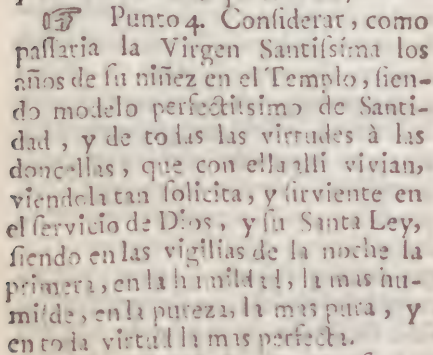 ☞ Punto 4. Considerar, como
passaria la Virgen Santissima los
años de su niñez en el Templo, sien-
do modelo perfectissimo de Santi-
dad, y de todas las virtudes à las
doncellas, que con ella alli vivian,
viendola tan solicita, y sirviente en
el servicio de Dios, y su Santa Ley,
siendo en las vigilias de la noche la
primera, en la humildad, la mas hu-
milde, en la pureza, la mas pura, y
en toda virtud la mas perfecta.